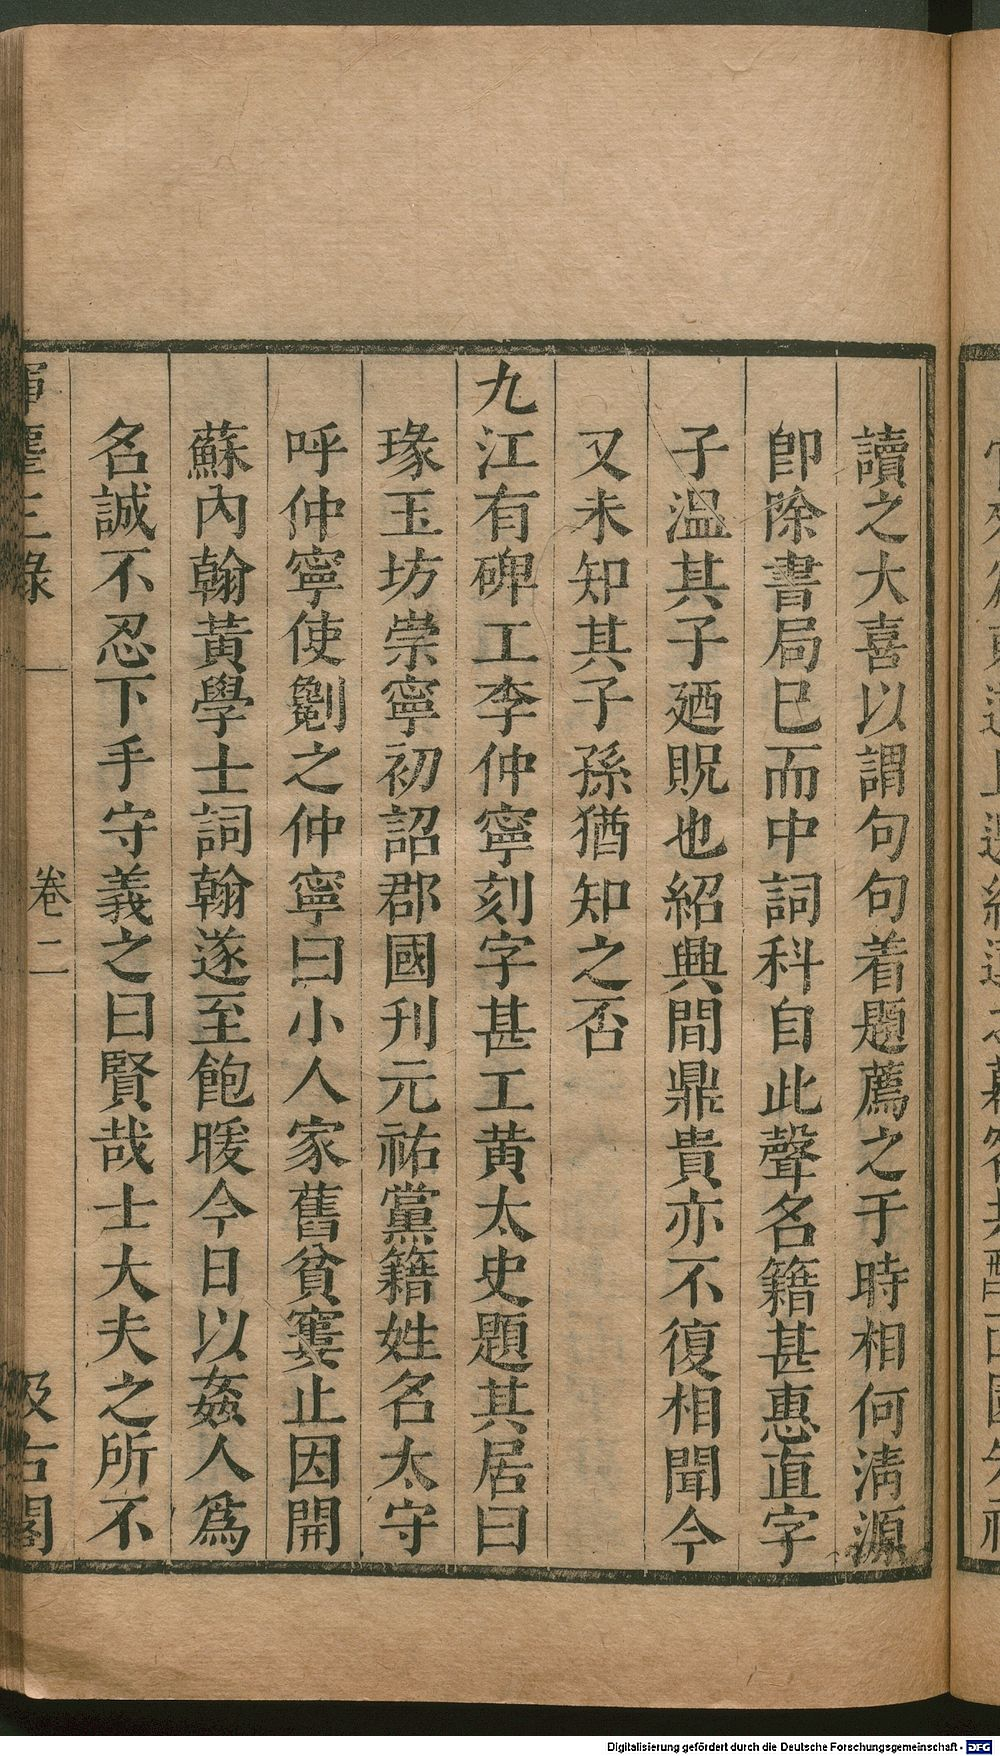 讀之大喜以謂句句着題薦之于時相何清源
卽除書局已而中詞科自此聲名籍甚惠直字
子溫其子廼貺也紹興間鼎貴亦不復相聞今
又未知其子孫猶知之否
九江有碑工李仲寧刻字甚工黄太史題其居曰
瑑玉坊崇寧初詔郡國刋元祐黨籍姓名太守
呼仲寧使劖之仲寧曰小人家舊貧窶止因開
蘇內翰黃學士詞翰遂至飽暖今日以姦人爲
名誠不忍下手守義之曰賢哉士大夫之所不
揮麈三錄
卷二
汲古閣
Digitalisierung gefördert durch die Deutsche Forschungsgemeinschaft - DFG